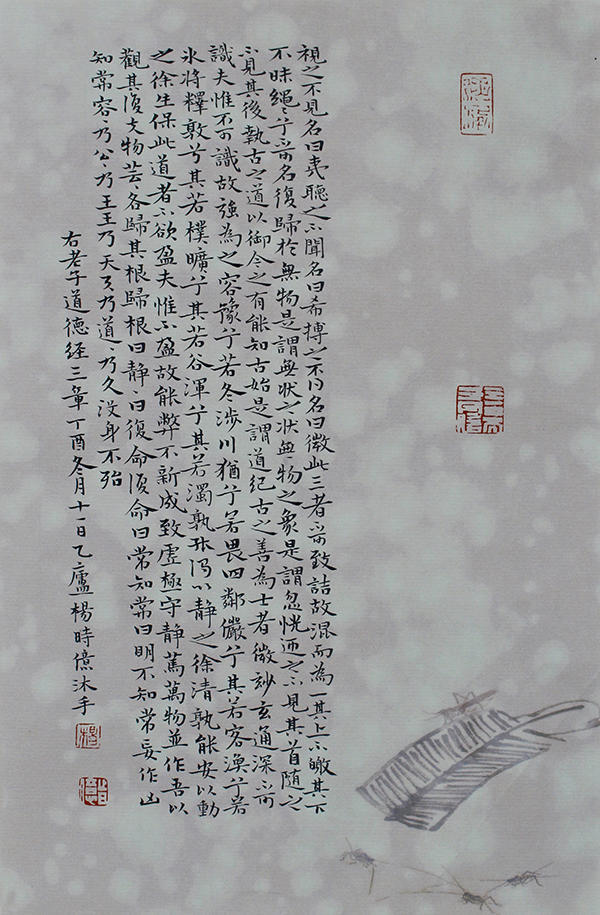 視之不見名曰夷聽之不聞名曰希搏之不得名曰微此三者不可致詰故混而為一其上不皦其下
不昧繩〻兮不可名復歸於無物是謂無狀之狀無物之象是謂忽恍迎之不見其首隨之
不見其後執古之道以御今之有能知古始是謂道紀古之善為士者微妙玄通深不可
識夫惟不可識故強為之容豫兮若冬涉川猶兮若畏四鄰儼兮其若容渙兮若
冰將釋敦兮其若樸曠兮其若谷渾兮其若濁孰能濁以靜之徐清孰能安以動
之徐生保此道者不欲盈夫惟不盈故能弊不新成致虛極守靜篤萬物並作吾以
觀其復夫物芸〻各歸其根歸根曰靜〻曰復命復命曰常知常曰明不知常妄作凶
知常容〻乃公〻乃王王乃天天乃道〻乃久沒身不殆
右老子道德經三章丁酉冬月十一日乙廬楊時億沐手
楊